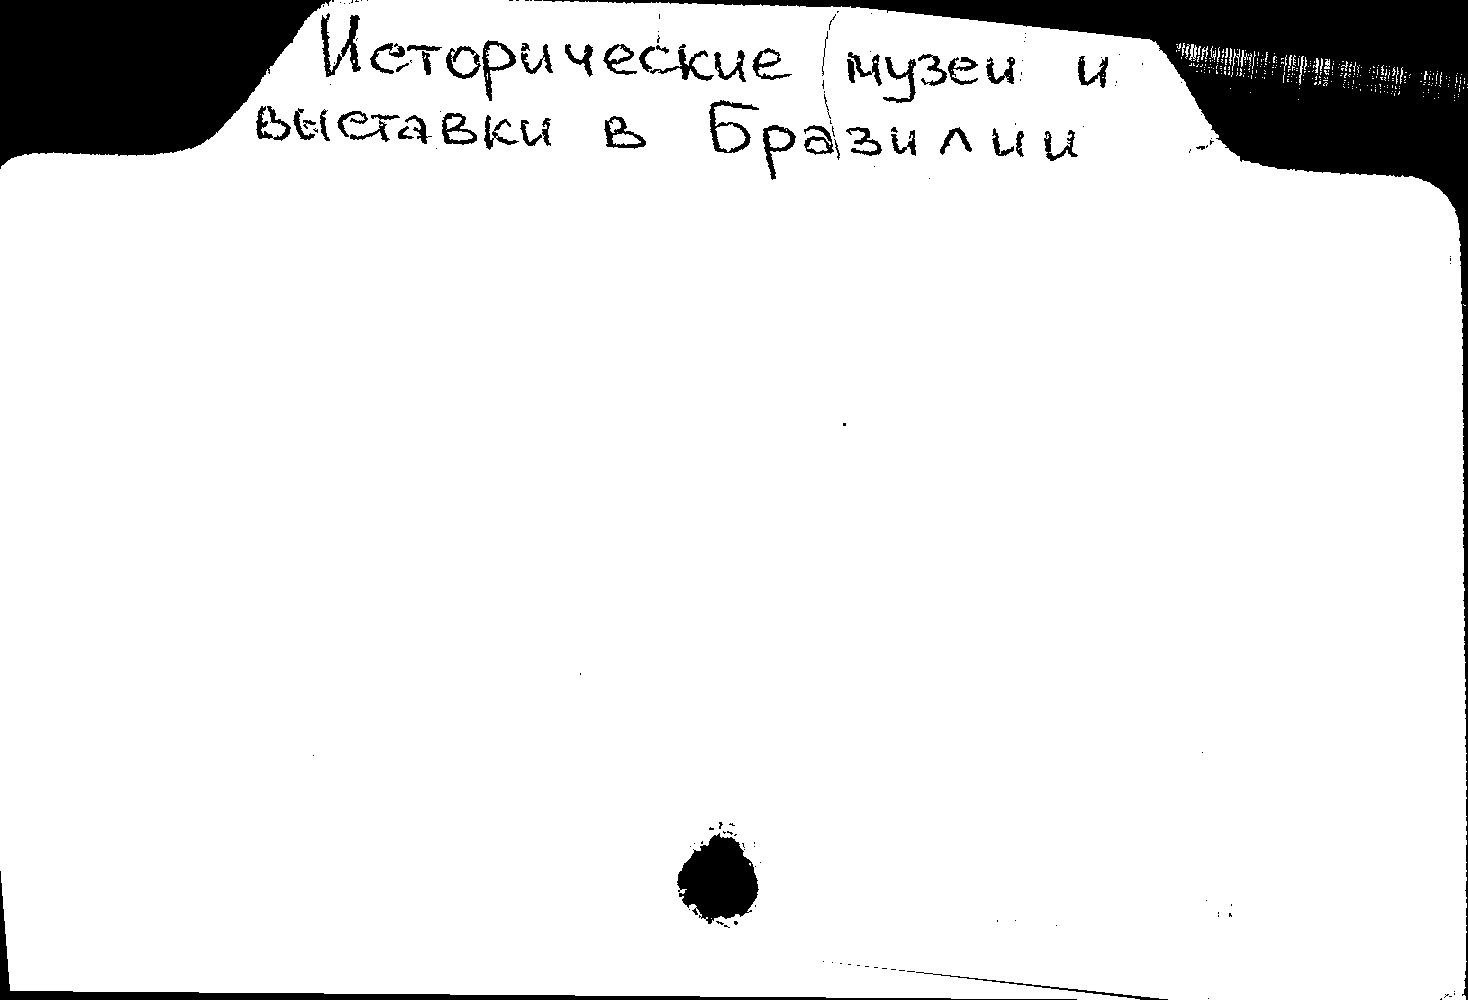 Исторические музеи и
выставки в Бразилии